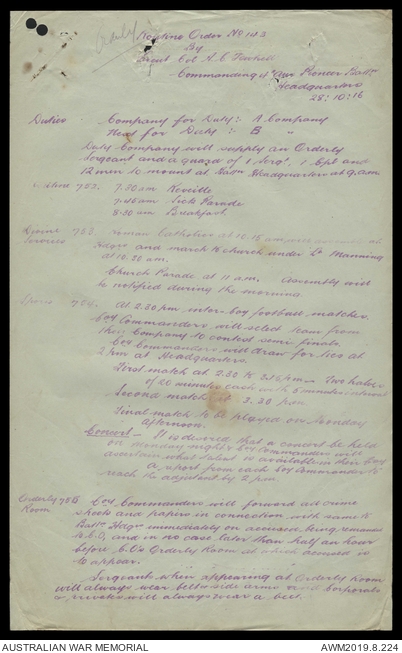 Orderly
Routine Order No 143
By
Lieut Col A.C. Fewtrell
Commanding 4th Aus Pioneer Battn
Headquarters
28.10.16
Duties Company for Duty: A Company
Next for Duty: B "
Duty Company will supply an Orderly
Sergeant and a guard of 1 Sergt, 1 Cpl and
12 men to mount at Battn Headquarters at 9 a.m.
752. 7.30 am Reveille
7.45 am Sick Parade
8.30 am Breakfast
Divine 753. Roman Catholics at 10.15 am will at
Services Hdqrs and march to church under Lt Manning
at 10.20 am.
Church Parade at 11 a.m. Assembly will
be notified during the morning.
Sports 754. At 2.30 pm inter-Coy football matches.
Coy Commanders will select team from
their Company to contest semi finals.
Coy Commanders will draw for ties at
2 pm at Headquarters.
First match at 2.30 to 3.15 pm - Two halves
of 20 minutes each with 5 minutes interval
Second match at 3.20 pm
Final match to be played on Monday
afternoon.
Concert - It is desired that a concert be held
on Monday night & Coy Commanders will
ascertain what talent is available in their Coy
A report from each Coy Commander to
reach the adjutant by 2 pm.
Orderly 755 Coy Commanders will forward all crime
Room sheets and papers in connection with same to
Battn Hdqrs immediately on accused being remanded
to C.O, and in no case later than half an hour
before C.O's Orderly Room at which accused is
to appear.
Sergeants when appearing at Orderly Room
will always wear belts side arms and Corporals
& privates will always wear a belt.
AUSTRALIAN WAR MEMORIAL
AWM2019.8.224